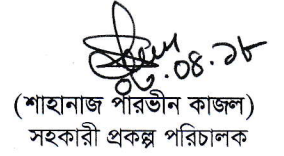 ০৮.০৪.১৮
(শাহানাজ পারভীন কাজল)
সহকারী প্রকল্প পরিচালক